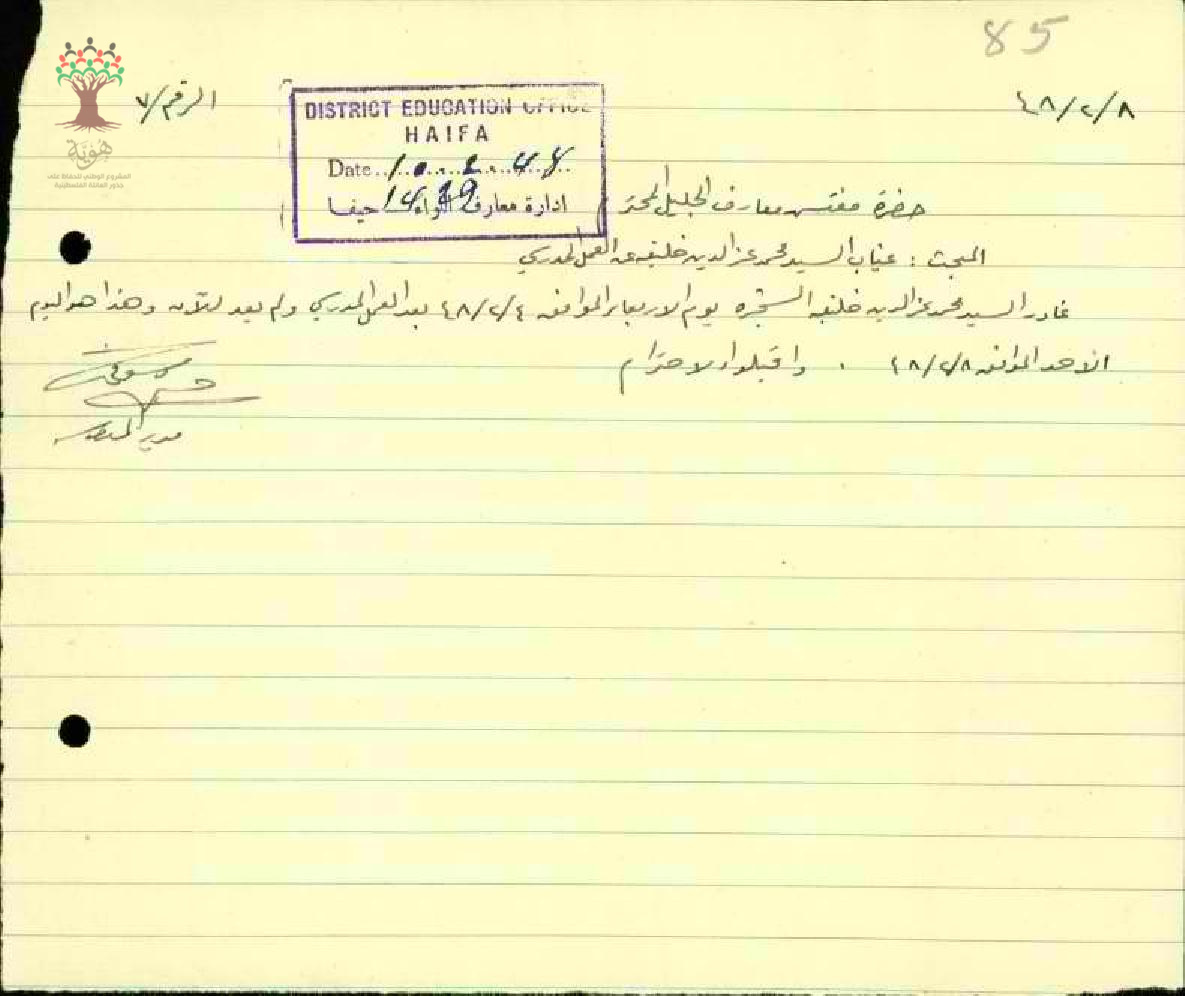 85
الرقم/٧
٤٨/٢/٨
DISTRICT EDUCATION OFFICE
HAIFA
Date 10.2.48
ادارة معارف لواء حيفا
1429
هوية
المشروع الوطني للحفاظ على
جذور العائلة الفلسطينية
حضرة مفتش معارف الجليل المحترم
المبحث : غياب السيد محمد عز الدين خليفه عن العمل المدرسي
غادر السيد محمد عز الدين خليفه الشجره يوم الاربعاء الموافق ٤٨/٢/٤ بعد العمل المدرسي ولم يعد للآن وهذا هو اليوم
الاحد الموافق ٤٨/٢/٨ . واقبلوا الاحترام
مدير المدرسه